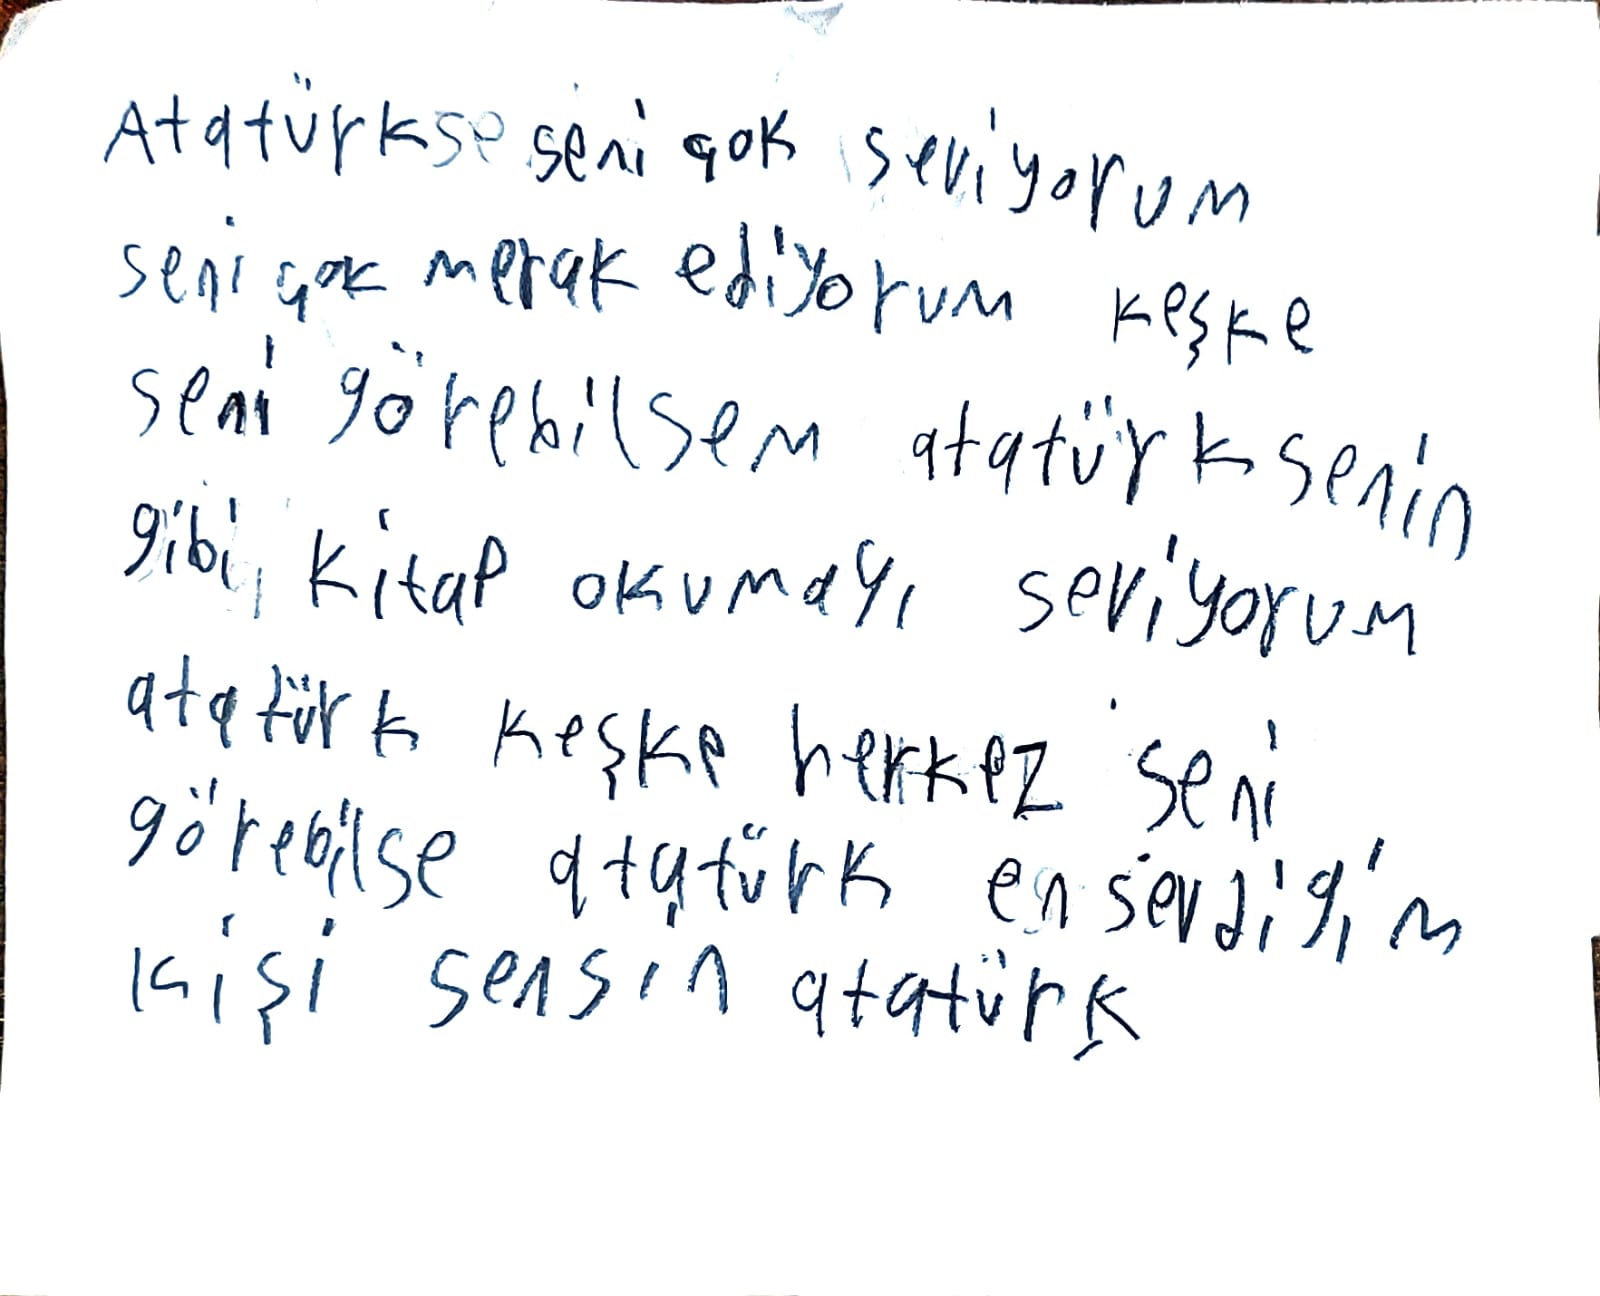 Atatürkse seni çok seviyorum
seni çok merak ediyorum keşke
seni görebilsem atatürk senin
gibi kitap okumayı seviyorum
atatürk keşke herkez seni
görebilse atatürk en sevdigim
kişi sensin atatürk